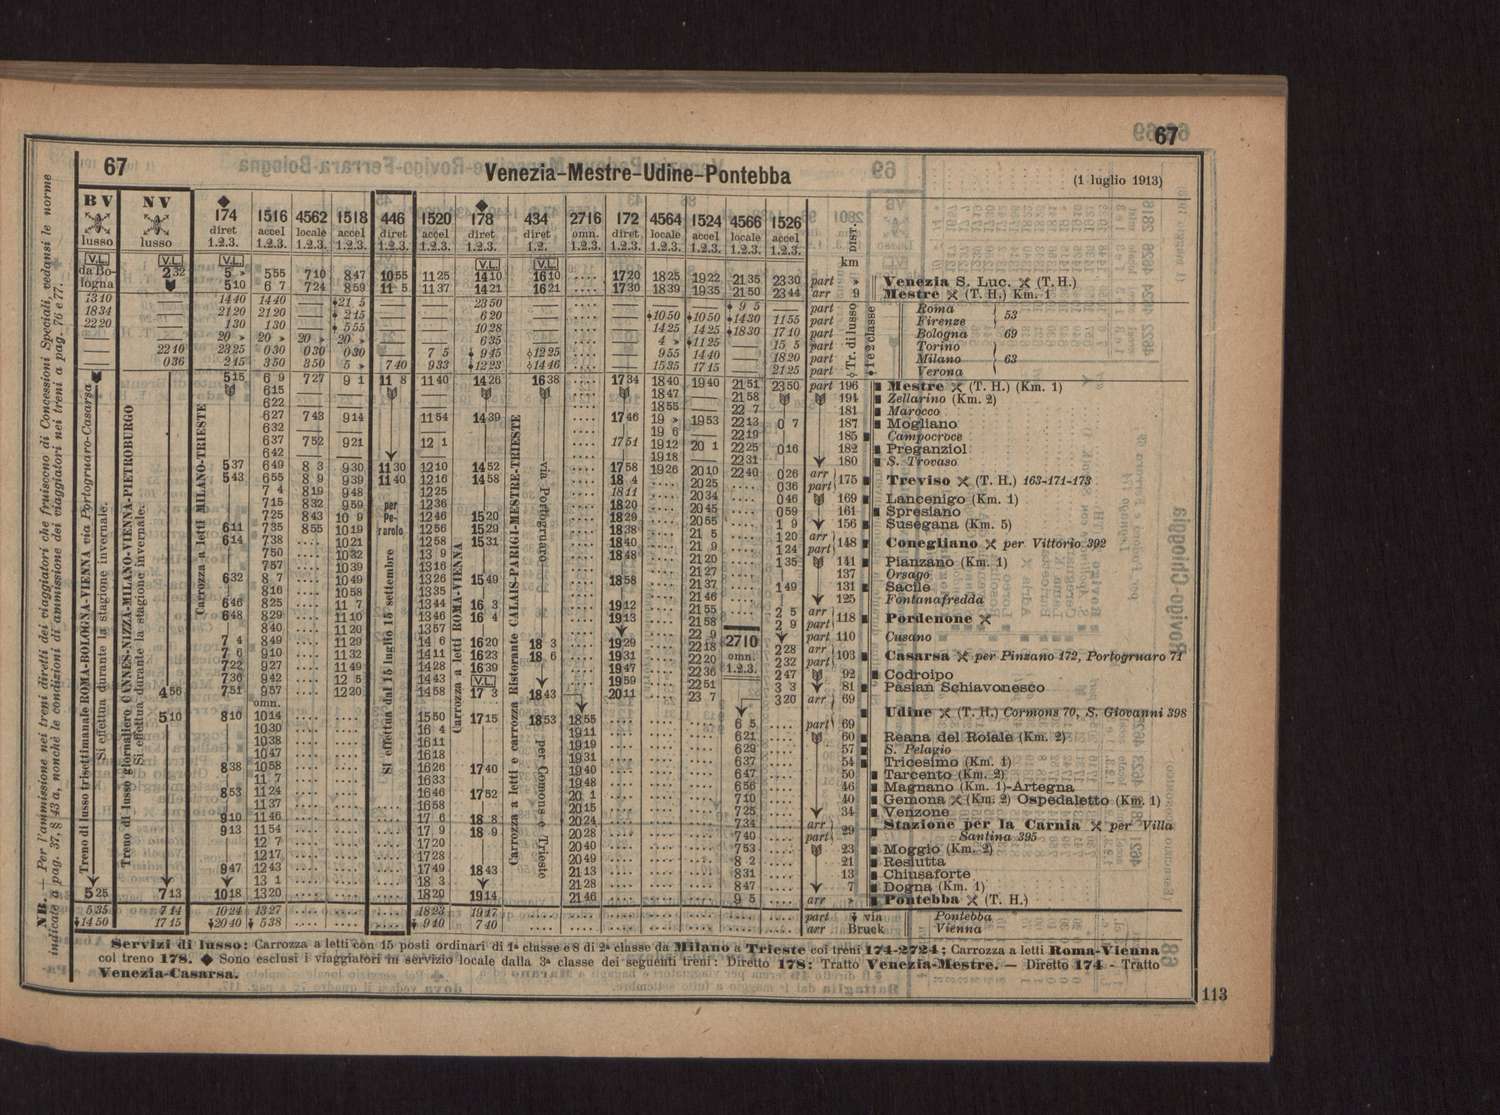 67
67 Venezia-Mestre-Udine-Pontebba (1 luglio 1913)
NB. — Per l'ammissione nei treni diretti dei viaggiatori che fruiscono di Concessioni Speciali, vedansi le norme
indicate a pag. 37, § 43 a, nonchè le condizioni di ammissione dei viaggiatori nei treni a pag. 76 e 77.
BV NV 174 1516 4562 1518 446 1520 178 434 2716 172 4564 1524 4566 1526
lusso lusso diret accel locale accel diret accel diret diret omn. diret locale accel locale accel
1.2.3. 1.2.3. 1.2.3. 1.2.3. 1.2.3. 1.2.3. 1.2.3. 1.2. 1.2.3. 1.2.3. 1.2.3. 1.2.3. 1.2.3. 1.2.3.
DIST. km
V.L. V.L. V.L. V.L. V.L.
da Bologna 2 32 5 » 5 55 7 10 8 47 10 55 11 25 14 10 16 10 .... 17 20 18 25 19 22 21 35 23 30 part » Venezia S. Luc. (T.H.)
5 10 6 7 7 24 8 59 11 5 11 37 14 21 16 21 .... 17 30 18 39 19 35 21 50 23 44 arr 9 Mestre (T. H.) Km. 1
13 10 14 40 14 40 21 5 23 50 9 5 part Roma
18 34 21 20 21 20 2 15 6 20 10 50 10 50 14 30 11 55 part Firenze 53
22 20 1 30 1 30 5 55 10 28 14 25 14 25 18 30 17 10 part Bologna 69
20 » 20 » 20 » 20 » 6 35 4 » 11 25 15 5 part Torino
22 10 23 25 0 30 0 30 0 30 7 5 9 45 12 25 9 55 14 40 18 20 part Milano 63
0 36 2 45 3 50 3 50 5 » 7 40 9 33 12 23 14 46 15 35 17 15 21 25 part Verona
Tr. di lusso
1 e 2 classe
5 15 6 9 7 27 9 1 11 8 11 40 14 26 16 38 .... 17 34 18 40 19 40 21 51 23 50 part 196 Mestre (T. H.) (Km. 1)
6 15 18 47 21 58 194 Zellarino (Km. 2)
6 22 18 55 22 7 181 Marocco
6 27 7 43 9 14 11 54 14 39 17 46 19 » 19 53 22 13 0 7 187 Mogliano
6 32 19 6 22 19 185 Campocroce
6 37 7 52 9 21 12 1 17 51 19 12 20 1 22 25 0 16 182 Preganziol
6 42 19 18 22 31 180 S. Trovaso
5 37 6 49 8 3 9 30 11 30 12 10 14 52 17 58 19 26 20 10 22 40 0 26 arr
5 43 6 55 8 9 9 39 11 40 12 16 14 58 18 4 20 25 0 36 part 175 Treviso (T. H.) 163-171-173
7 4 8 19 9 48 12 25 18 11 20 34 0 46 169 Lancenigo (Km. 1)
7 15 8 32 9 59 12 36 18 20 20 45 0 59 161 Spresiano
7 25 8 43 10 9 12 46 15 20 18 29 20 55 1 9 156 Susegana (Km. 5)
6 11 7 35 8 55 10 19 12 56 15 29 18 38 21 5 1 20 arr
6 14 7 38 .... 10 21 12 58 15 31 18 40 21 9 1 24 part 148 Conegliano per Vittorio 392
7 50 .... 10 32 13 9 18 48 21 20 1 35 141 Pianzano (Km. 1)
7 57 .... 10 39 13 16 21 27 137 Orsago
6 32 8 7 .... 10 49 13 26 15 49 18 58 21 37 1 49 131 Sacile
8 16 .... 10 58 13 35 21 46 125 Fontanafredda
6 46 8 25 .... 11 7 13 44 16 3 19 12 21 55 2 5 arr
6 48 8 29 .... 11 10 13 46 16 4 19 13 21 58 2 9 part 118 Pordenone
8 40 .... 11 20 13 57 22 9 part 110 Cusano
7 4 8 49 .... 11 29 14 6 16 20 18 3 19 29 22 18 2 28 arr
7 6 9 10 .... 11 32 14 11 16 23 18 6 19 31 22 20 2 32 part 103 Casarsa per Pinzano 172, Portogruaro 71
7 22 9 27 .... 11 49 14 28 16 39 19 47 22 36 2 47 92 Codroipo
7 36 9 42 .... 12 5 14 43 V.L. 19 59 22 51 3 3 81 Pasian Schiavonesco
4 56 7 51 9 57 .... 12 20 14 58 17 3 18 43 20 11 23 7 3 20 arr 69
2710 omn. 1.2.3.
omn.
Udine (T. H.) Cormons 70, S. Giovanni 398
5 10 8 10 10 14 .... 15 50 17 15 18 53 18 55 .... 6 5 part 69
10 30 16 4 19 11 6 21 60 Reana del Roiale (Km. 2)
10 38 16 11 19 19 6 29 57 S. Pelagio
10 47 16 18 19 31 6 37 54 Tricesimo (Km. 1)
8 38 10 58 16 26 17 40 19 40 6 47 50 Tarcento (Km. 2)
11 7 16 33 19 48 6 56 46 Magnano (Km. 1)-Artegna
8 53 11 24 16 46 17 52 20 1 7 10 40 Gemona (Km. 2) Ospedaletto (Km. 1)
11 37 16 58 20 15 7 25 34 Venzone
9 10 11 46 17 6 18 8 20 24 7 34 arr
9 13 11 54 17 9 18 9 20 28 7 40 part 29 Stazione per la Carnia per Villa Santina 395
12 7 17 20 20 40 7 53 23 Moggio (Km. 2)
12 17 17 28 20 49 8 2 21 Resiutta
9 47 12 43 17 49 18 43 21 13 8 31 13 Chiusaforte
13 1 18 3 21 28 8 47 7 Dogna (Km. 1)
5 25 7 13 10 18 13 20 18 20 19 14 21 46 9 5 arr » Pontebba (T. H.)
5 35 7 14 10 24 13 27 .... 18 23 19 17 part via Pontebba
14 50 17 15 20 40 5 38 .... 9 40 7 40 arr Bruck Vienna
Treno di lusso trisettimanale ROMA-BOLOGNA-VIENNA via Portogruaro-Casarsa
Si effettua durante la stagione invernale.
Treno di lusso giornaliero CANNES-NIZZA-MILANO-VIENNA-PIETROBURGO
Si effettua durante la stagione invernale.
Carrozza a letti MILANO-TRIESTE
per Perarolo
Si effettua dal 15 luglio al 15 settembre
Carrozza a letti ROMA-VIENNA
Carrozza a letti e carrozza Ristorante CALAIS-PARIGI-MESTRE-TRIESTE
via Portogruaro
per Comons e Trieste
Servizi di lusso: Carrozza a letti con 15 posti ordinari di 1ª classe e 8 di 2ª classe da Milano a Trieste coi treni 174-2724; Carrozza a letti Roma-Vienna
col treno 178. ◆ Sono esclusi i viaggiatori in servizio locale dalla 3ª classe dei seguenti treni: Diretto 178: Tratto Venezia-Mestre. — Diretto 174 - Tratto
Venezia-Casarsa.
113